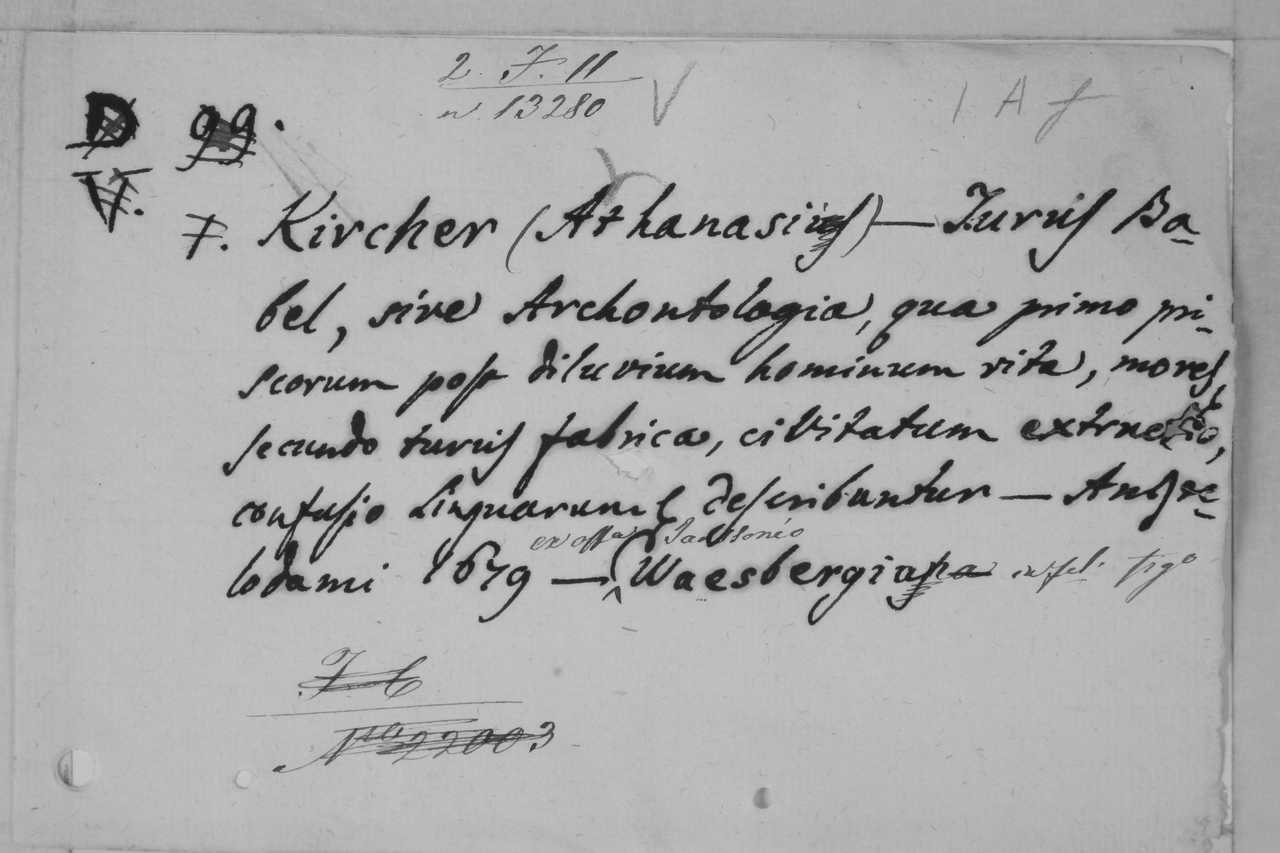 2. F. 11
n 13280
1 A f
D 99.
V.
7. Kircher (Athanasius) — Turris Ba-
bel, sive Archontologia, qua primo pri-
scorum post diluvium hominum vita, mores,
secundo turris fabrica, civitatum extructio,
confusio linguarum describuntur — Amste-
ex offa Janssonio
lodami 1679 — Waesbergiana in fol. figo
F C
Nro 22003